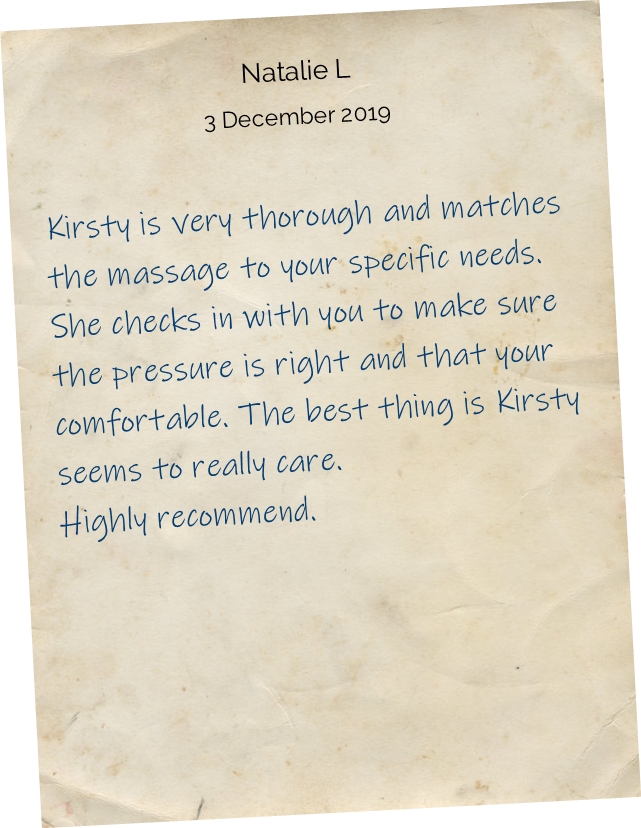 Natalie L
3 December 2019
Kirsty is very thorough and matches
the massage to your specific needs.
She checks in with you to make sure
the pressure is right and that your
comfortable. The best thing is Kirsty
seems to really care.
Highly recommend.